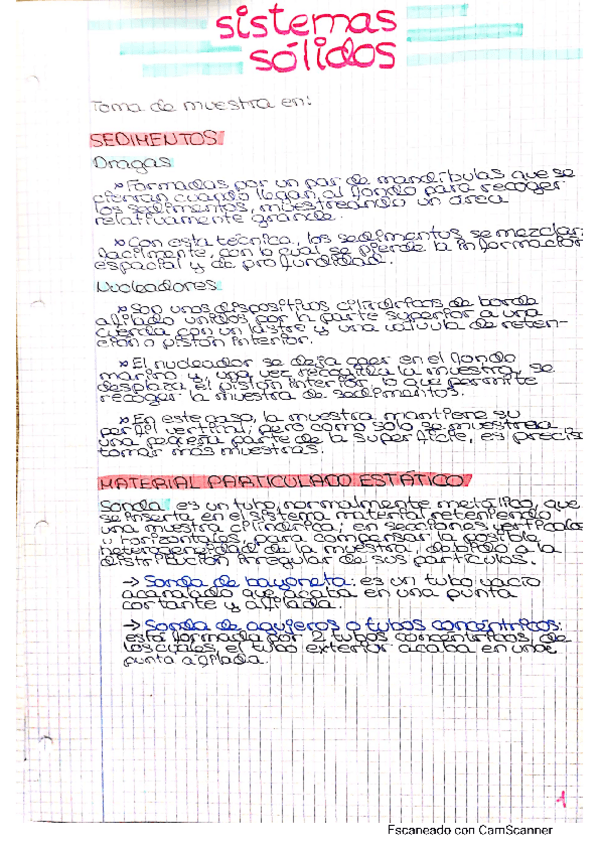 sistemas
sólidos
Toma de muestra en:
SEDIMENTOS
Dragas
» Formadas por un par de mandíbulas que se
cierran cuando llegan al fondo para recoger
los sedimentos, muestreando un área
relativamente grande.
» Con esta técnica, los sedimentos se mezclan
facilmente, con lo cual se pierde la información
espacial y de profundidad.
Nucleadores
» Son unos dispositivos cilíndricos de borde
afilado unidos por la parte superior a una
cuerda con un lastre y una válvula de reten-
ción o pistón interior.
» El nucleador se deja caer en el fondo
marino y, una vez recogida la muestra, se
desplaza el pistón interior, lo que permite
recoger la muestra de sedimentos.
» En este caso, la muestra mantiene su
perfil vertical, pero como sólo se muestrea
una pequeña parte de la superficie, es preciso
tomar más muestras.
MATERIAL PARTICULADO ESTÁTICO
Sonda: es un tubo, normalmente metálico, que
se inserta en el sistema material reteniendo
una muestra cilíndrica; en secciones verticales
u horizontales, para compensar la posible
heterogeneidad de la muestra, debido a la
distribución irregular de sus partículas.
→ Sonda de bayoneta: es un tubo vacío
acanalado que acaba en una punta
cortante y afilada.
→ Sonda de agujeros o tubos concéntricos:
está formada por 2 tubos concéntricos, de
los cuales, el tubo exterior acaba en una
punta afilada.
1
Escaneado con CamScanner